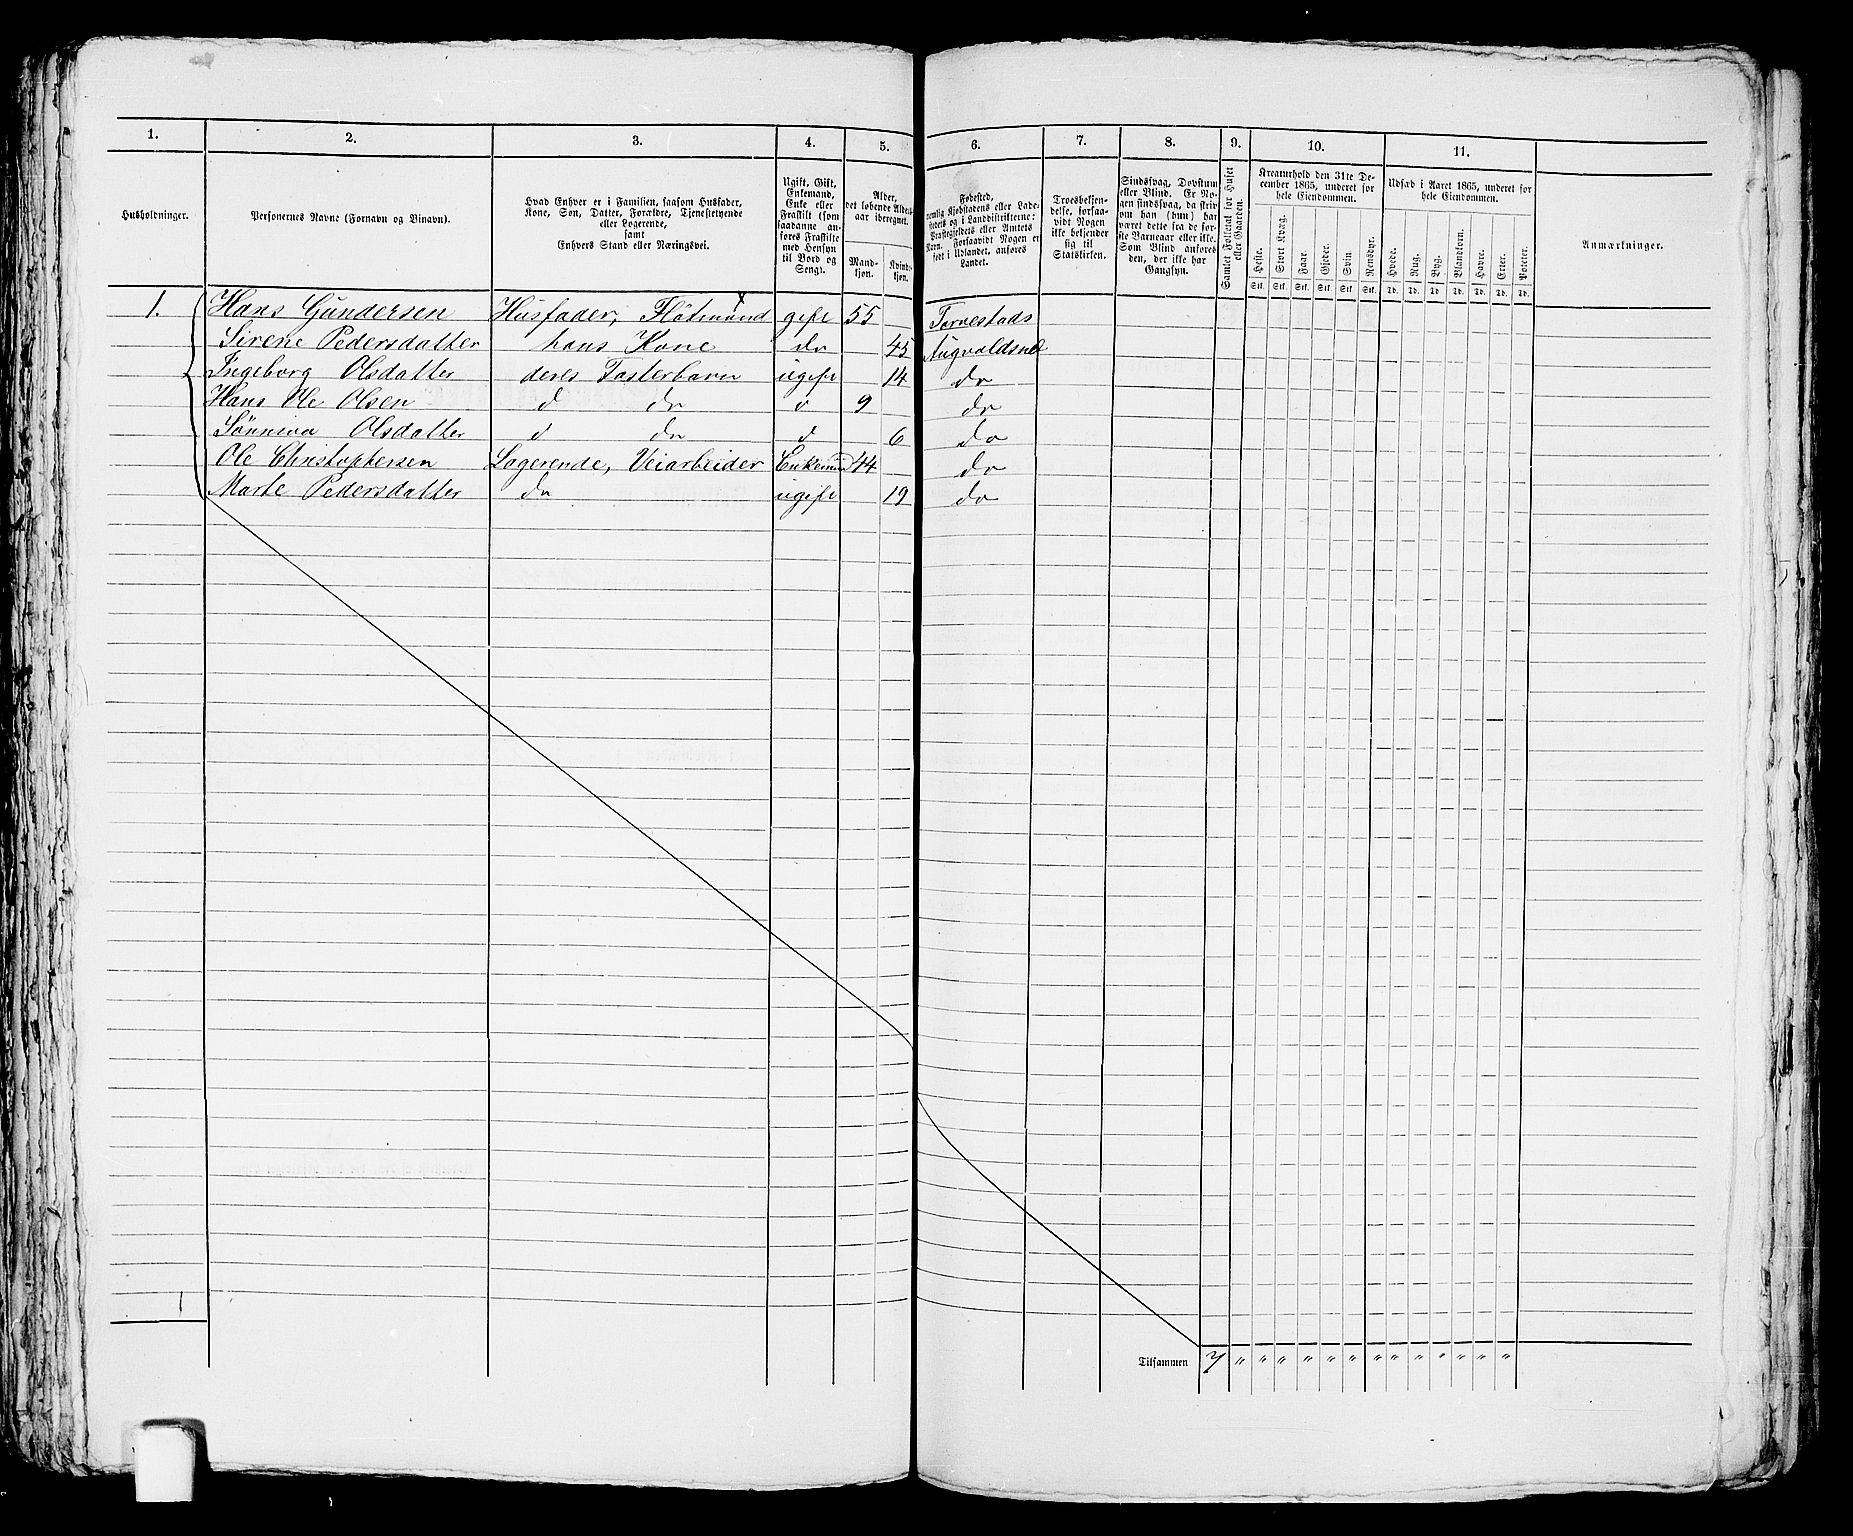 1. 2. 3. 4. 5. 6. 7. 8. 9. 10. 11.
Husholdninger.
Personernes Navne (Fornavn og Binavn).
Hvad Enhver er i Familien, saasom Husfader,
Kone, Søn, Datter, Forældre, Tjenestetyende
eller Logerende,
samt
Enhvers Stand eller Næringsvei.
Ugift, Gift,
Enkemand,
Enke eller
Fraskilt (som
saadanne an-
føres Fraskilte
med Hensyn
til Bord og
Seng).
Alder,
det løbende Alders-
aar iberegnet.
Mand-
kjøn.
Kvind-
kjøn.
Fødested,
nemlig Kjøbstadens eller Lade-
stedets og i Landdistrikterne:
Præstegjeldets eller Amtets
Navn. Forsaavidt Nogen er
født i Udlandet, anføres
Landet.
Troesbekjen-
delse, forsaa-
vidt Nogen
ikke bekjender
sig til
Statskirken.
Sindssvag, Døvstum
eller Blind. Er No-
gen sindssvag, da skriv
om han (hun) har
været dette fra de før-
ste Barneaar eller ikke.
Som Blind anføres
den, der ikke har
Gangsyn.
Samlet Folketal for Huset
eller Gaarden.
Kreaturhold den 31te De-
cember 1865, underet for
hele Eiendommen.
Heste. Stort Kvæg. Faar. Gjeder. Svin Rensdyr.
Stk. Stk. Stk. Stk. Stk. Stk.
Udsæd i Aaret 1865, underet for
hele Eiendommen.
Hvede. Rug. Byg. Blandkorn. Havre. Erter. Poteter.
Td. Td. Td. Td. Td. Td. Td.
Anmærkninger.
1. Hans Gundersen Husfader, Flötmand gift 55 Torvestads
Sirene Pedersdatter hans Kone do 45 Augvaldsnæs
Ingeborg Olsdatter deres Fosterbarn ugift 14 do
Hans Ole Olsen d do d 9 do
Sønneva Olsdatter d do d 6 do
Ole Christophersen Logerende, Veiarbeider Enkemnd 44 do
Marte Pedersdatter do ugift 19 do
1
Tilsammen 7 " " " " " " " " " " " " "